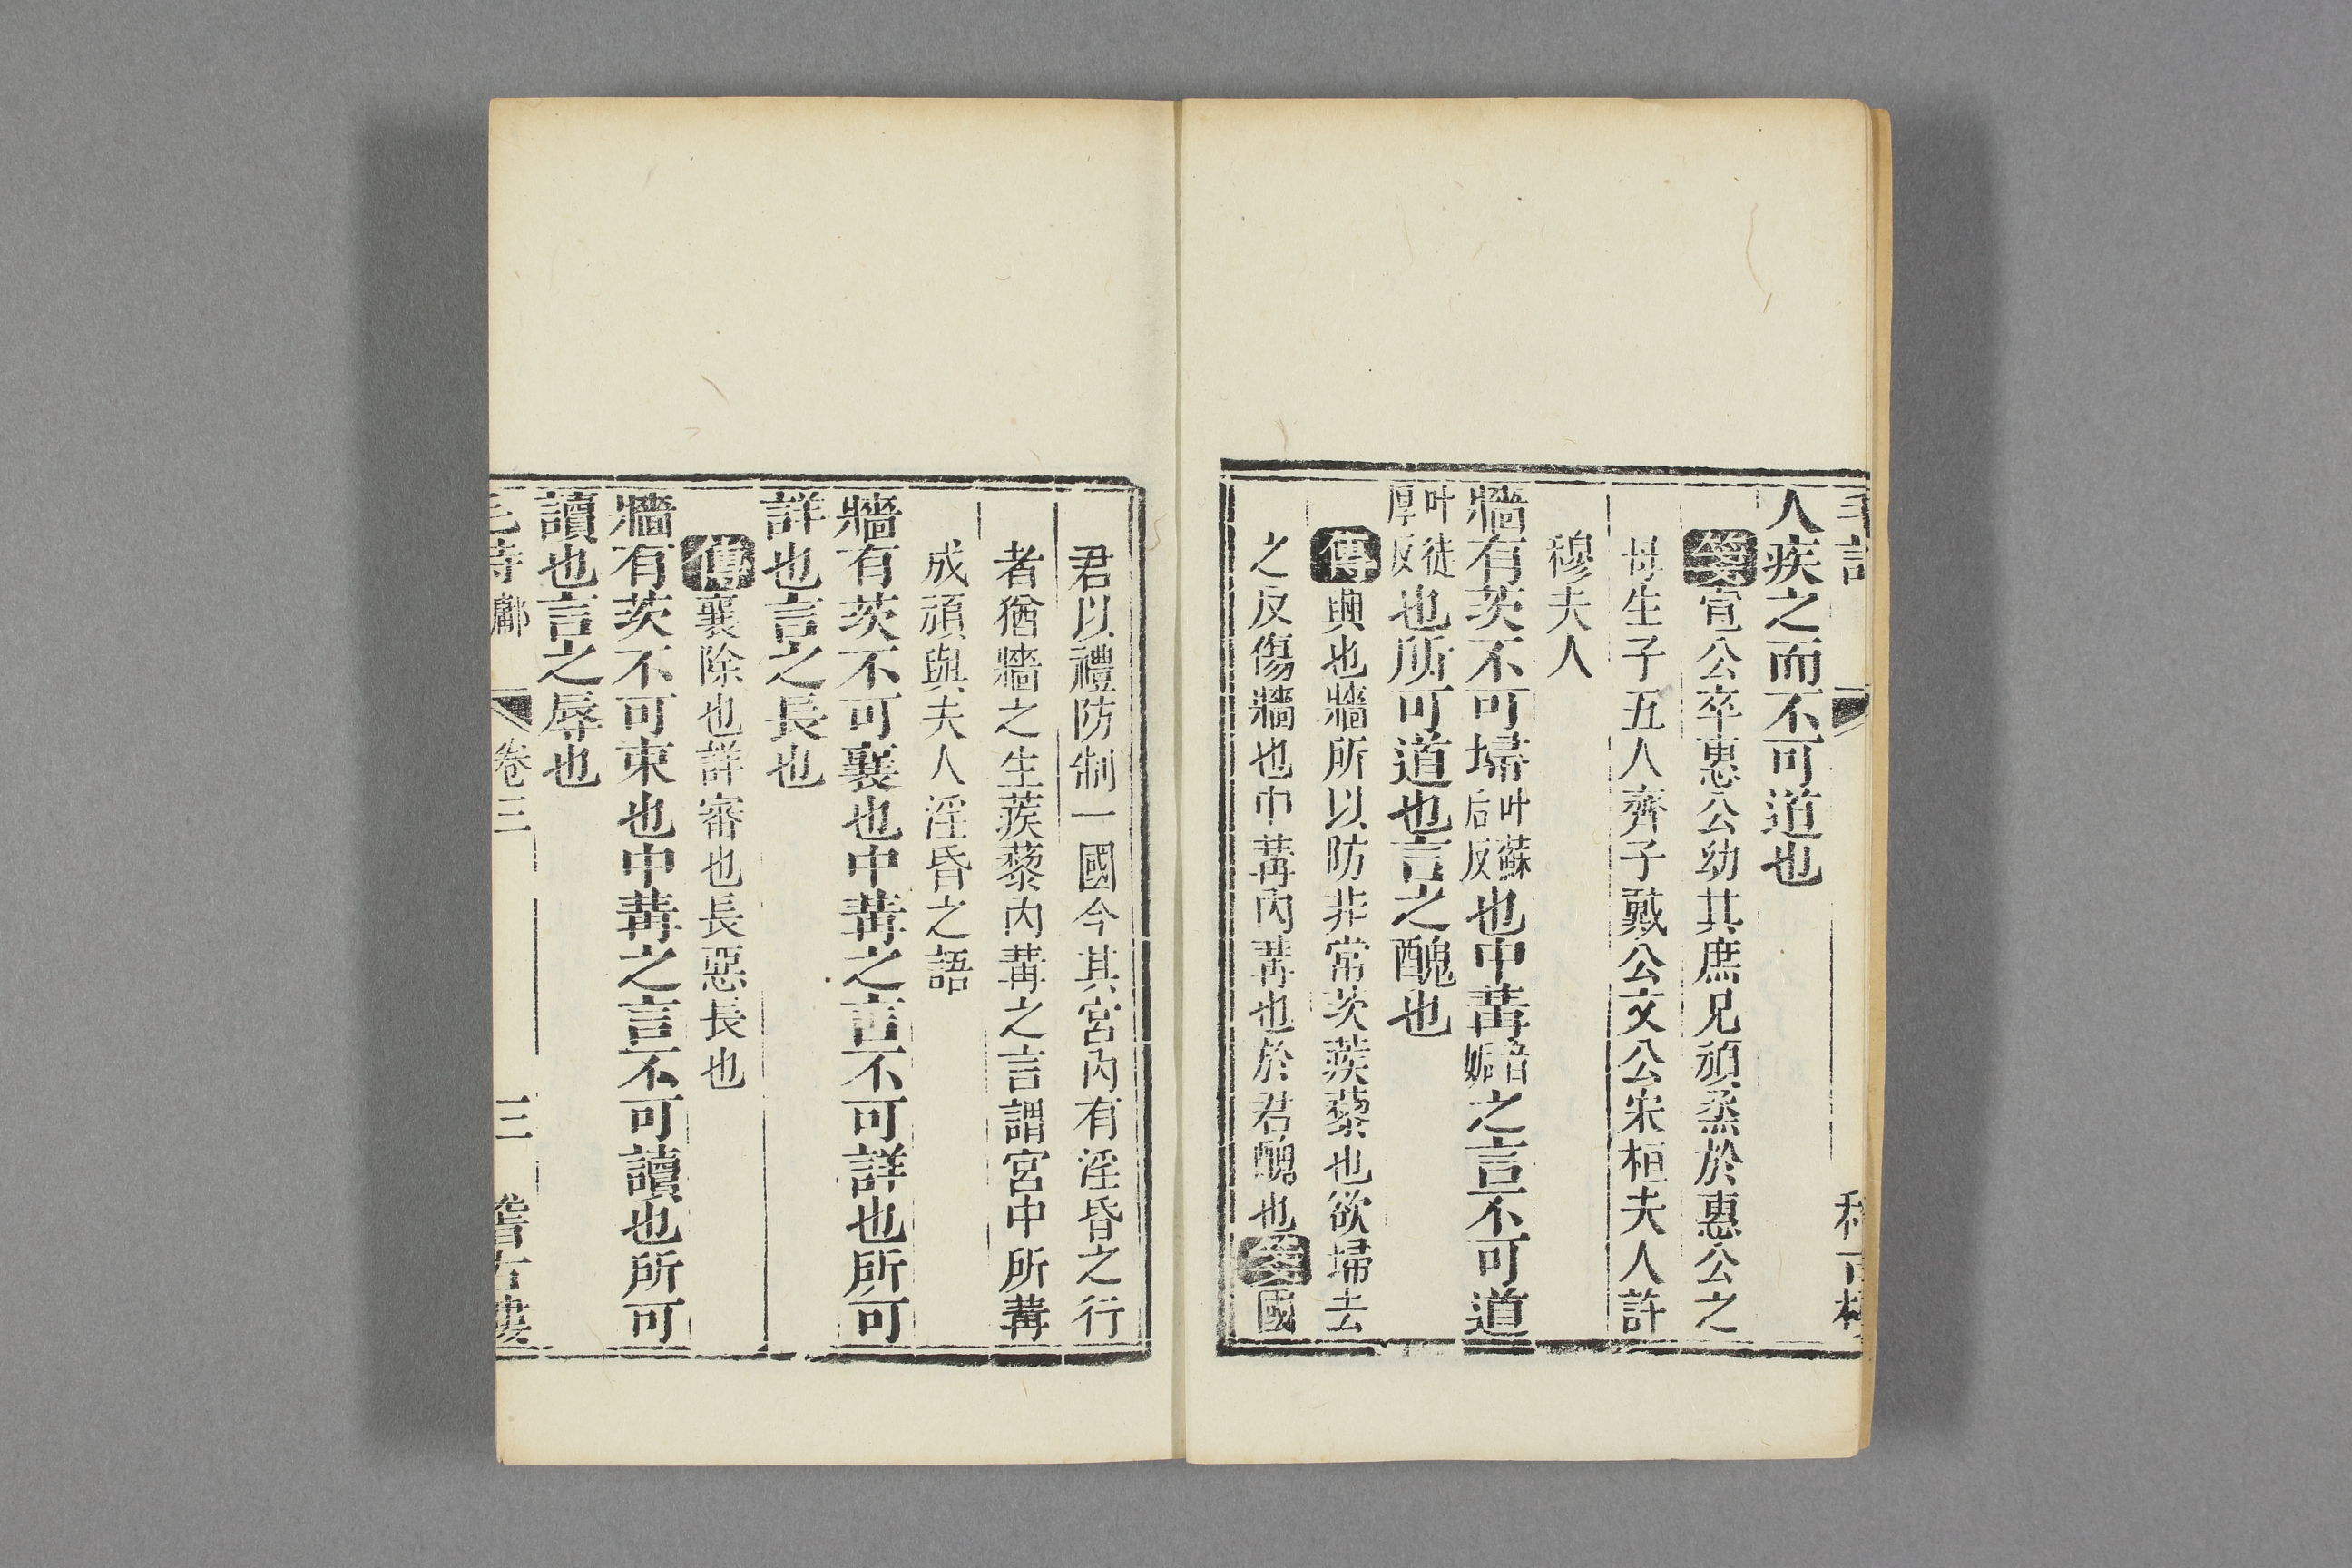 人疾之而不可道也
箋宣公卒惠公幼其庶兄頑烝於惠公之
母生子五人齊子戴公文公宋桓夫人許
穆夫人
牆有茨不可埽叶蘇后反也中冓音姤之言不可道
叶徒厚反也所可道也言之醜也
傳興也牆所以防非常茨蒺藜也欲埽去
之反傷牆也中冓內冓也於君醜也箋國
君以禮防制一國今其宮內有淫昏之行
者猶牆之生蒺藜內冓之言謂宮中所冓
成頑與夫人淫昏之語
牆有茨不可襄也中冓之言不可詳也所可
詳也言之長也
傳襄除也詳審也長惡長也
牆有茨不可束也中冓之言不可讀也所可
讀也言之辱也
毛詩 鄘 卷三 三 稽古樓